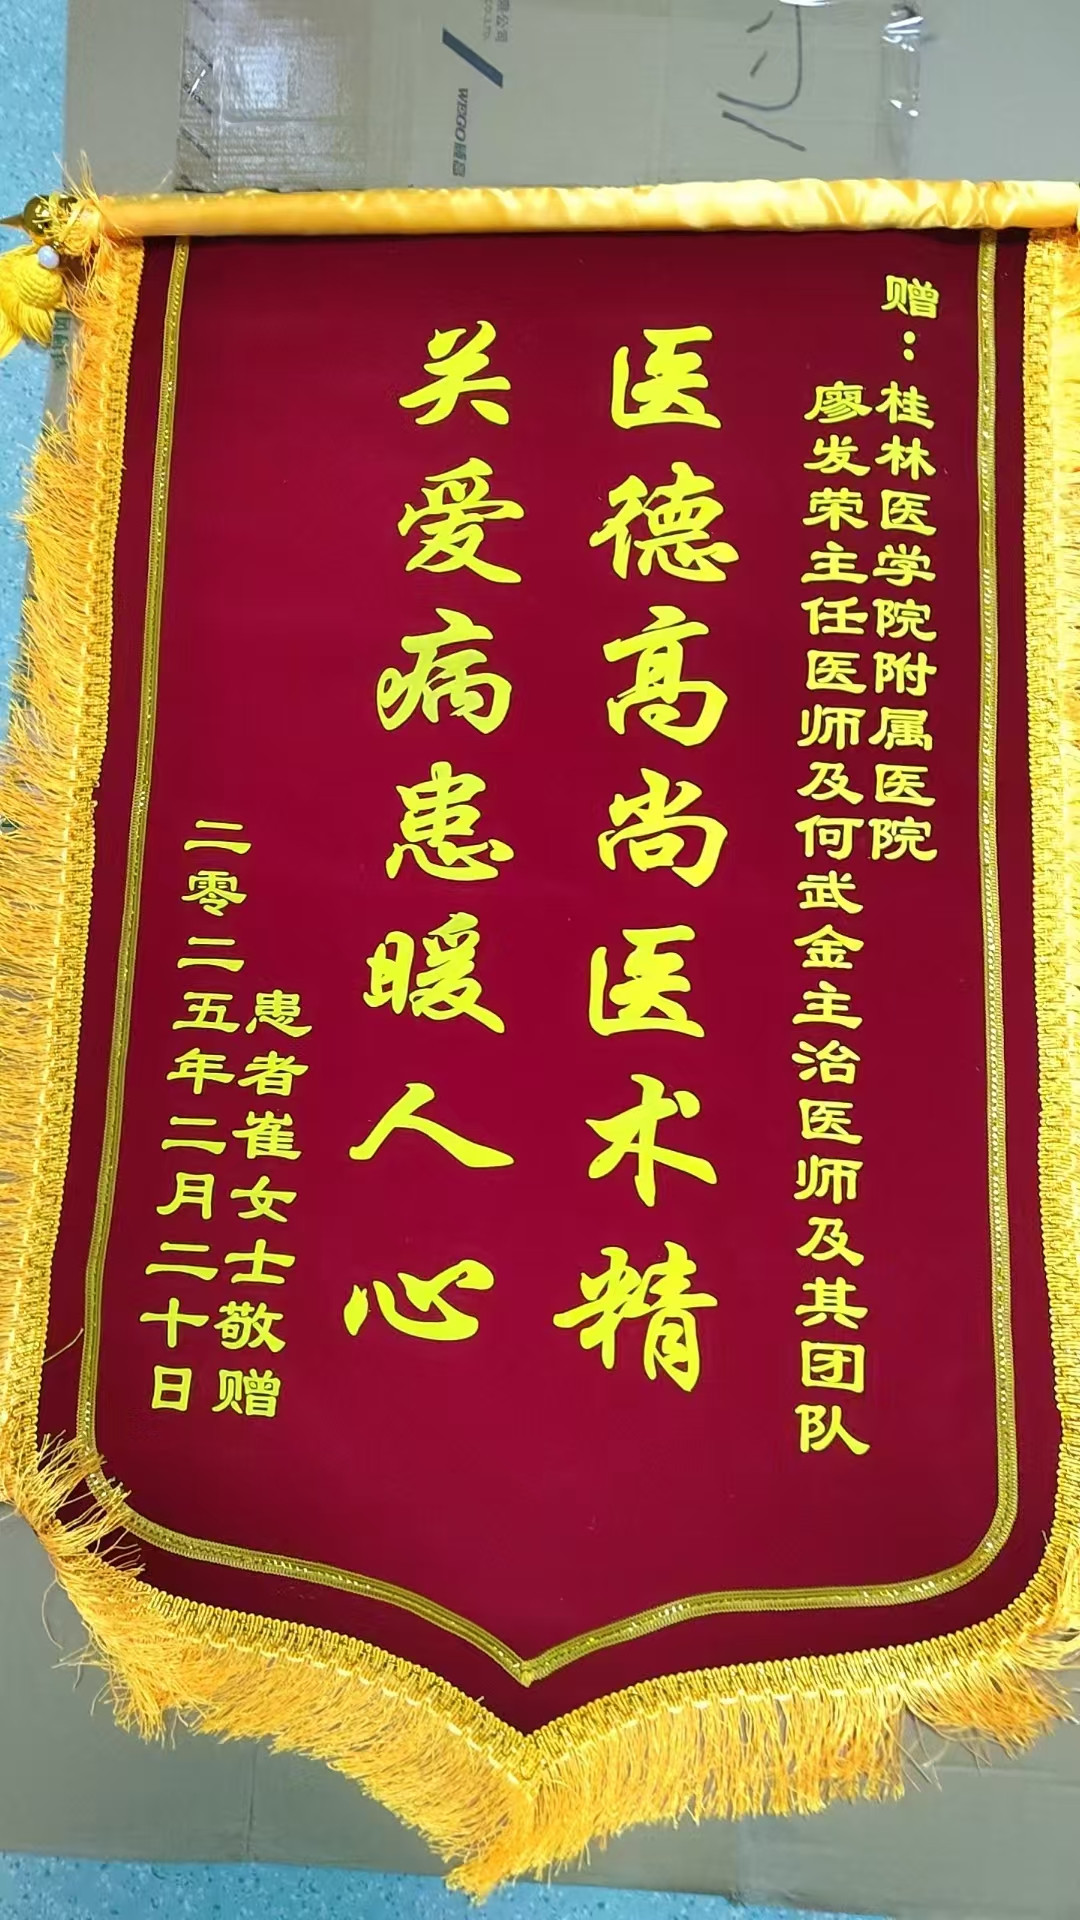 赠：桂林医学院附属医院
廖发荣主任医师及何武金主治医师及其团队
医德高尚医术精
关爱病患暖人心
患者崔女士敬赠
二零二五年二月二十日
WEGO